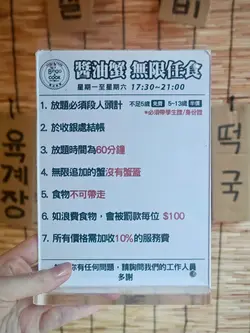 醬油蟹 無限任食
星期一至星期六 17:30~21:00
1. 放題必須段人頭計 不足5歲 免費 5~13歲 半價
*必須帶學生證/身份證
2. 於收銀處結帳
3. 放題時間為60分鐘
4. 無限追加的蟹沒有蟹蓋
5. 食物不可帶走
6. 如浪費食物，會被罰款每位 $100
7. 所有價格需加收10%的服務費
你有任何問題，請詢問我們的工作人員
多謝
육계장
떡국
비